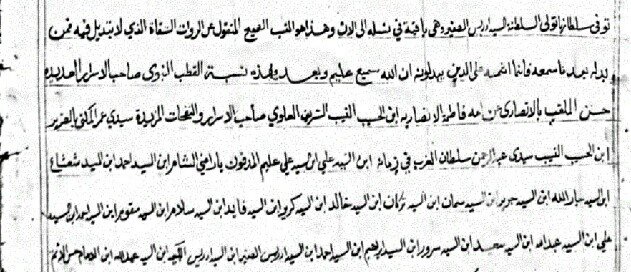 توفى سلطانها تولى السلطنة السيد ادريس الصغير وهى باقية في نسله الى الان وهذا هو النسب الصحيح المنقول عن الروات الثقاة الذي لا تبديل فيه فمن
بدله بعد ما سمعه فانما اثمه على الذين يبدلونه ان الله سميع عليم وبعد وهذه نسبة القطب النبوى صاحب الاسرار العديده
حسن الملقب بالانصارى من امه فاطمة الانصاريه ابن الحسيب النسيب الشريف العلوي صاحب الاسرار والنفحات المزيدة سيدي عمر المكنى العزيز
ابن الحسيب النسيب سيدى عبد الرحمن سلطان العرب في زمانه ابن السيد علي ابن سيد علي عليم المدفون الشاهر ابن السيد احمد ابن السيد شعشاع
ابن السيد ابن السيد ابن السيد سمان ابن السيد ابن السيد خالد ابن السيد ابن السيد فايد ابن السيد سلام ابن السيد ابن السيد احمد ابن السيد
علي ابن السيد عبد الله ابن السيد محمد ابن السيد سرور ابن السيد ابراهيم ابن السيد احمد ابن السيد ادريس الصغير ابن السيد ادريس الكبير ابن السيد عبد الله ابن الامام حسن